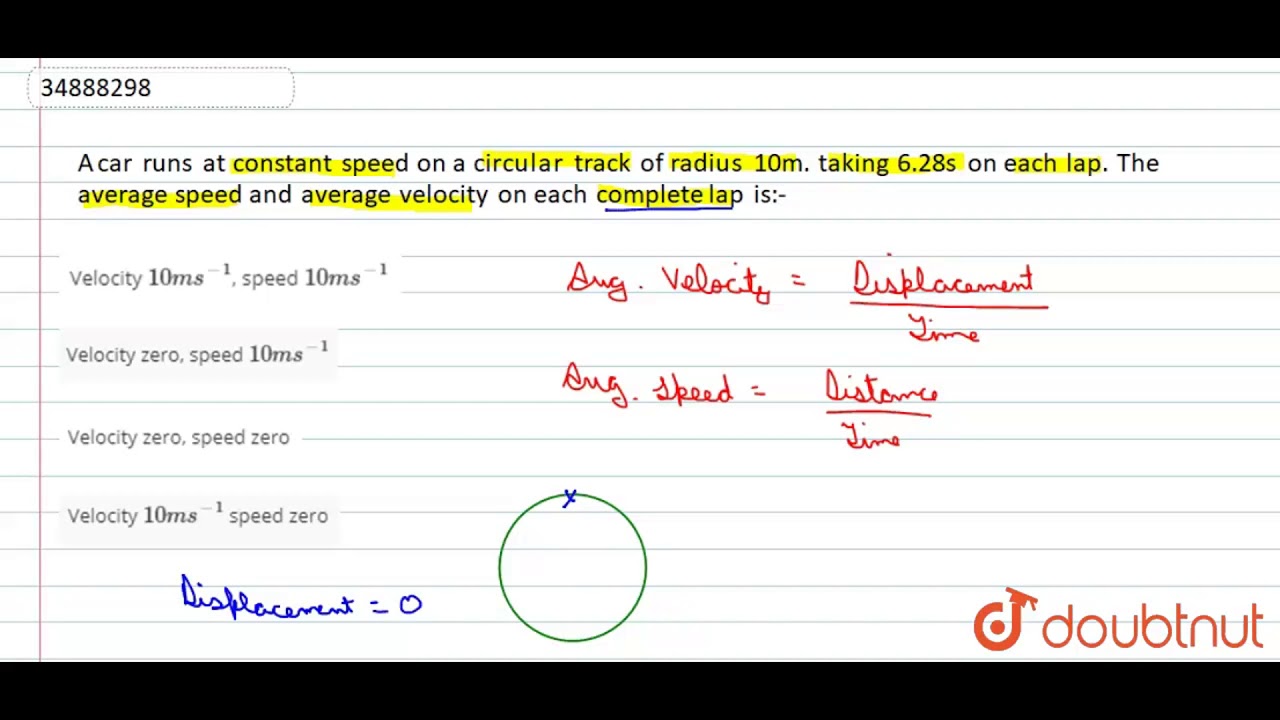 34888298
A car runs at constant speed on a circular track of radius 10m. taking 6.28s on each lap. The
average speed and average velocity on each complete lap is:-
Velocity 10ms⁻¹, speed 10ms⁻¹
Avg. Velocity = Displacement
Time
Velocity zero, speed 10ms⁻¹
Avg. Speed = Distance
Time
Velocity zero, speed zero
Velocity 10ms⁻¹ speed zero
x
Displacement = 0
doubtnut